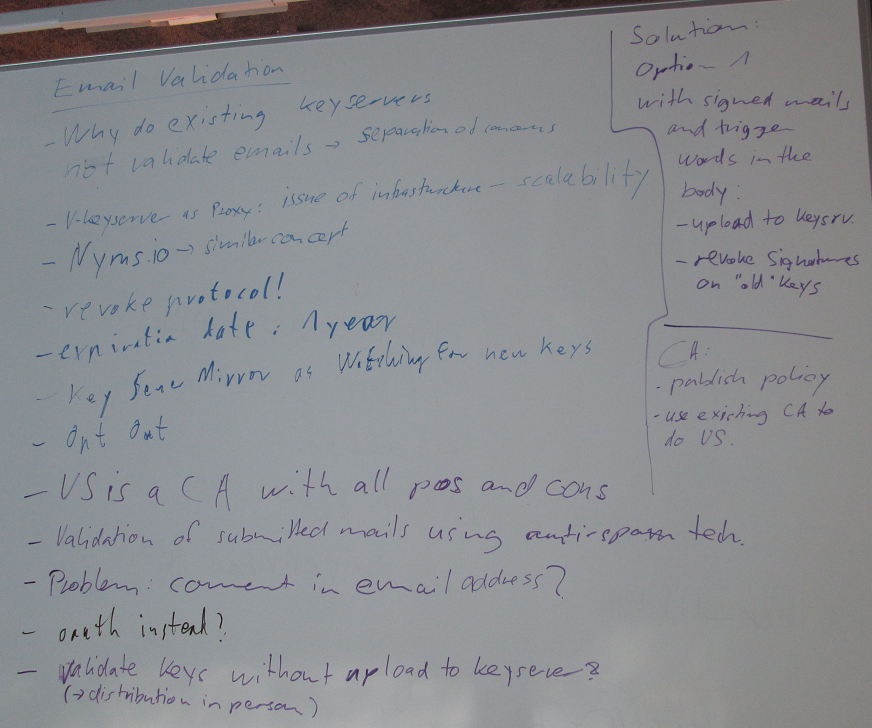 Email Validation
- Why do existing keyservers
not validate emails → separation of concerns
- V-keyserver as Proxy: issue of infrastructure - scalability
- Nyms.io → similar concept
- revoke protocol!
- expiration date: 1 year
- Key Server Mirror as Watching for new keys
- Opt Out
- VS is a CA with all pos and cons
- Validation of submitted mails using anti-spam tech.
- Problem: comment in email address?
- oauth instead?
- validate keys without upload to keyserver?
(→ distribution in person)
Solution:
Option 1
with signed mails
and trigger
words in the
body:
- upload to keysrv.
- revoke signatures
on "old" keys
CA:
- publish policy
- use existing CA to
do VS.